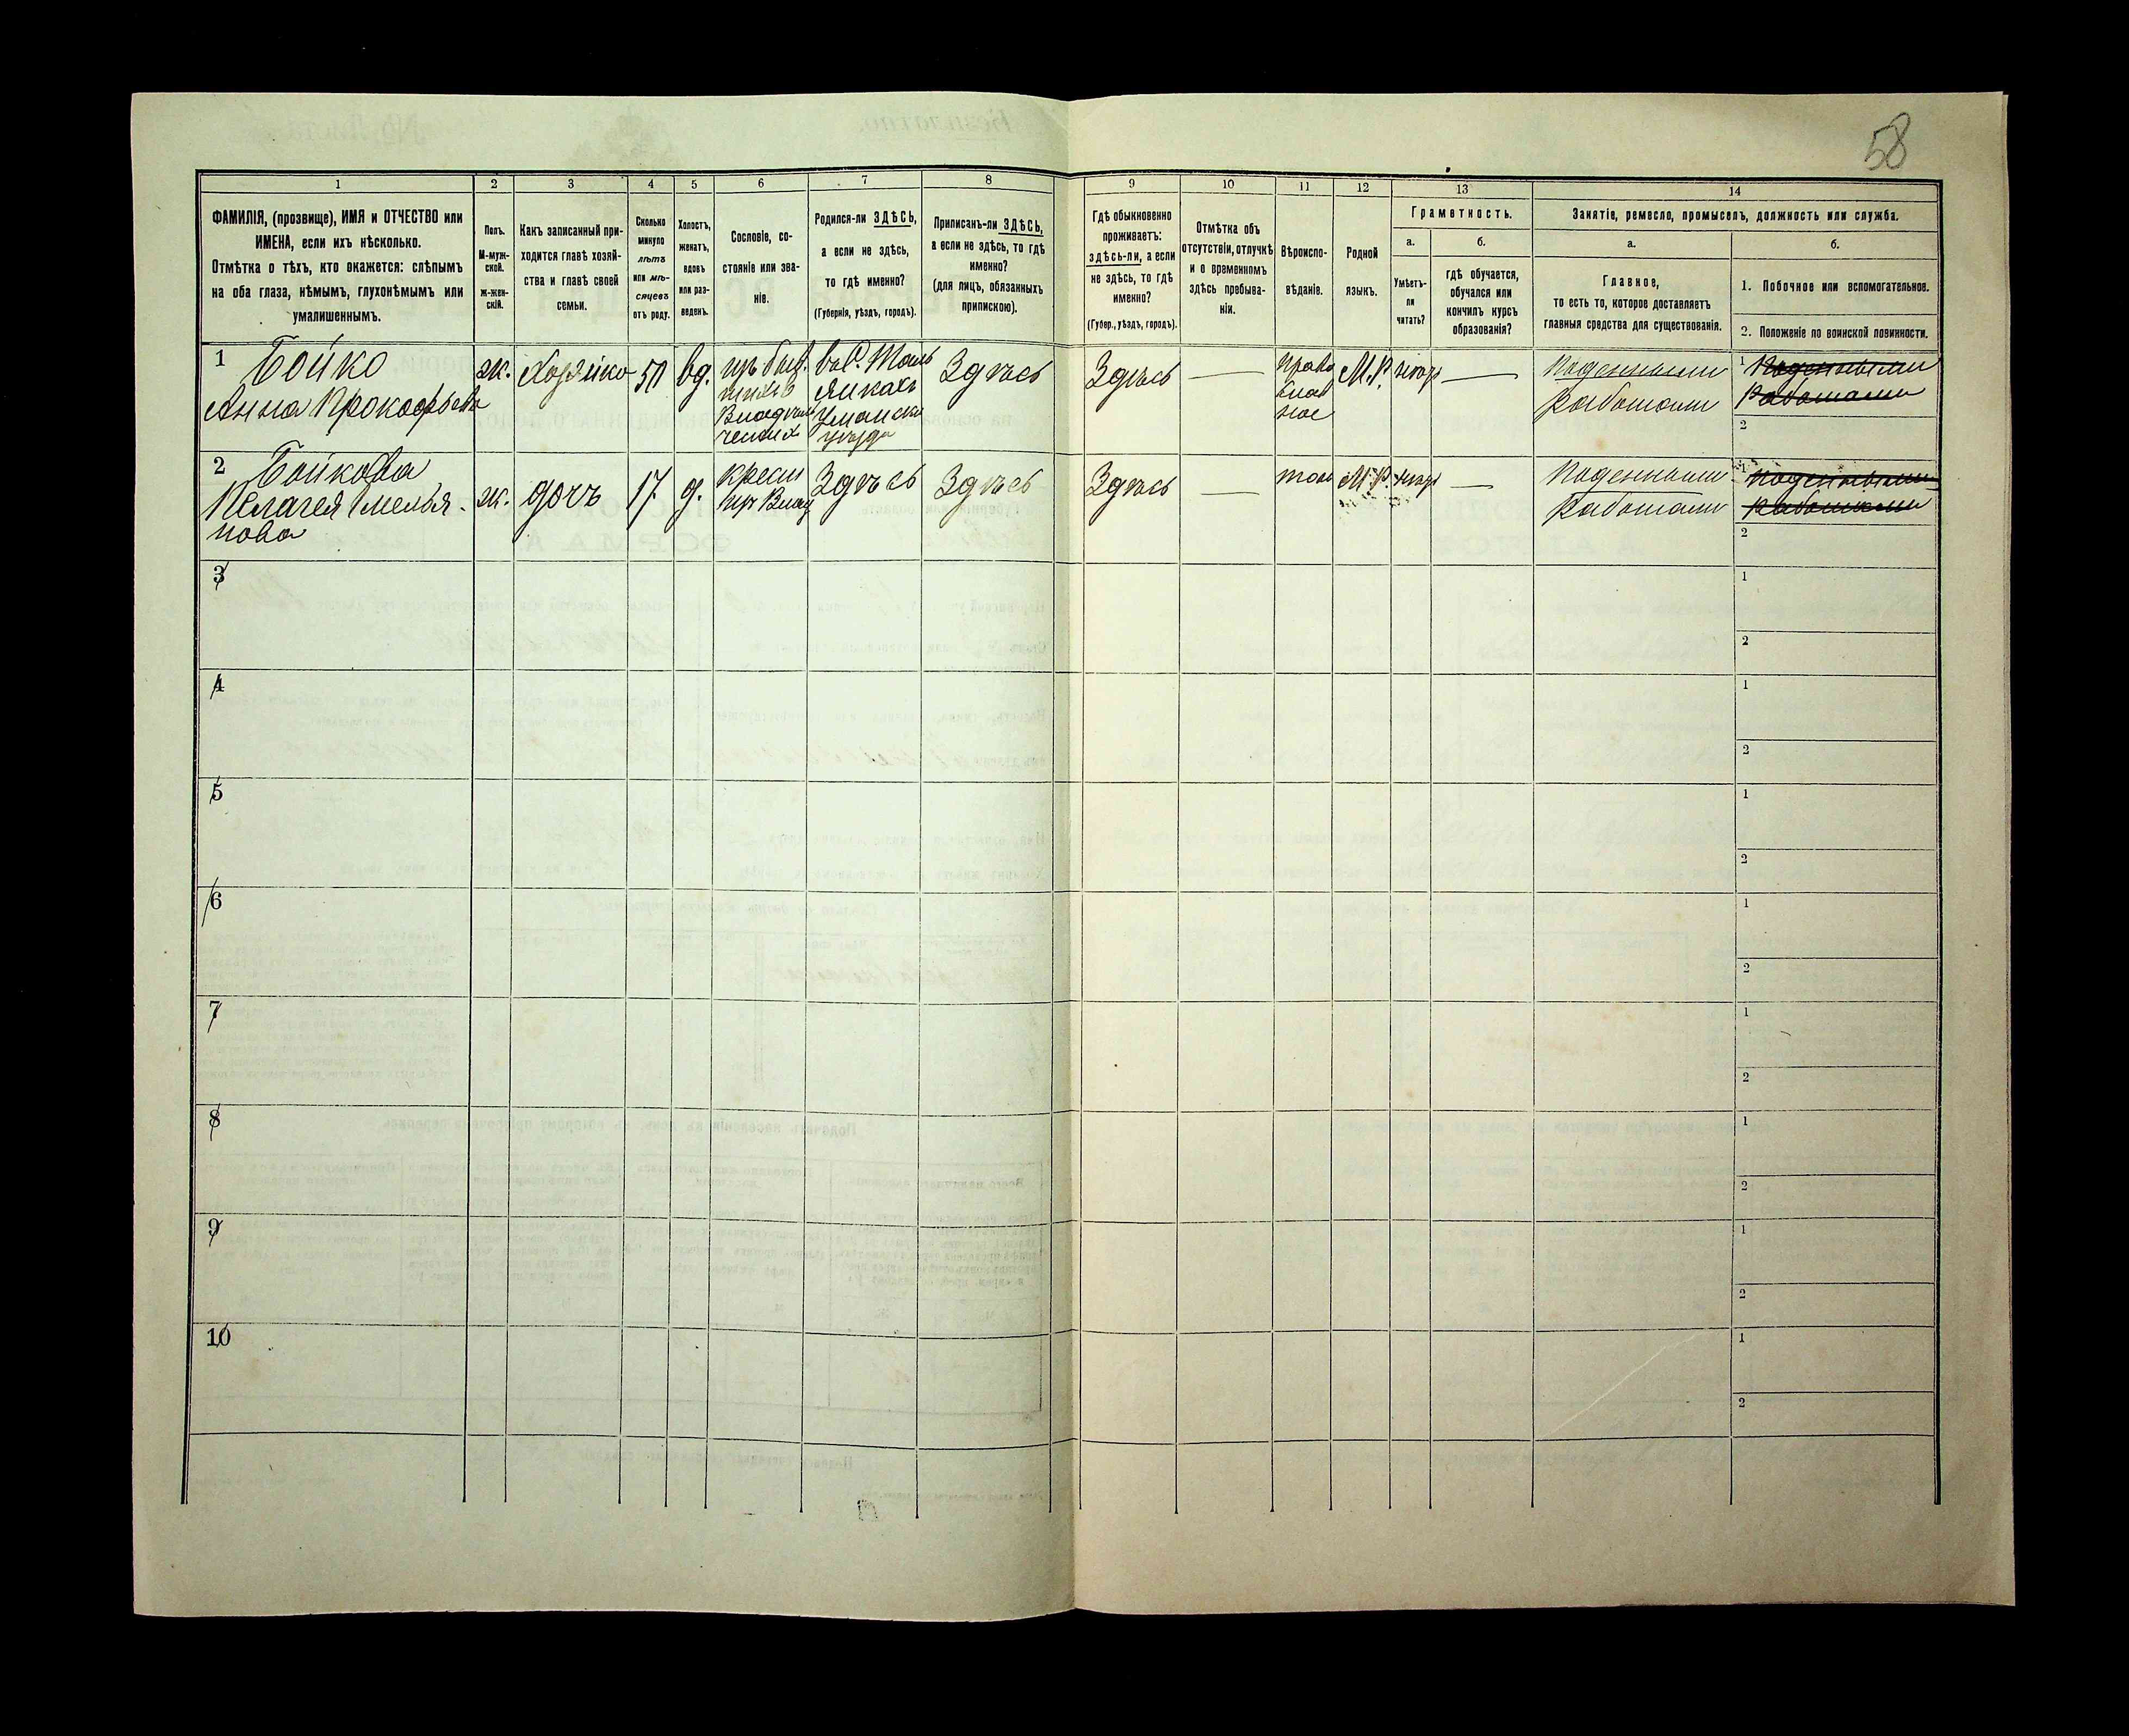 58
1
2
3
4
5
6
7
8
9
10
11
12
13
14
ФАМИЛІЯ, (прозвище), ИМЯ и ОТЧЕСТВО или
ИМЕНА, если ихъ нѣсколько.
Отмѣтка о тѣхъ, кто окажется: слѣпымъ
на оба глаза, нѣмымъ, глухонѣмымъ или
умалишеннымъ.
Полъ.
М-муж-
ской.
ж-жен-
скій.
Какъ записанный при-
ходится главѣ хозяй-
ства и главѣ своей
семьи.
Сколько
минуло
лѣтъ
или мѣ-
сяцевъ
отъ роду.
Холостъ,
женатъ,
вдовъ
или раз-
веденъ.
Сословіе, со-
стояніе или зва-
ніе.
Родился-ли ЗДѢСЬ,
а если не здѣсь,
то гдѣ именно?
(Губернія, уѣздъ, городъ).
Приписанъ-ли ЗДѢСЬ,
а если не здѣсь, то гдѣ
именно?
(для лицъ, обязанныхъ
припискою).
Гдѣ обыкновенно
проживаетъ:
здѣсь-ли, а если
не здѣсь, то гдѣ
именно?
(Губер., уѣздъ, городъ).
Отмѣтка объ
отсутствіи, отлучкѣ
и о временномъ
здѣсь пребыва-
ніи.
Вѣроиспо-
вѣданіе.
Родной
языкъ.
Грамотность.
а.
Умѣетъ-
ли
читать?
б.
гдѣ обучается,
обучался или
кончилъ курсъ
образованія?
Занятіе, ремесло, промыселъ, должность или служба.
а.
Главное,
то есть то, которое доставляетъ
главныя средства для существованія.
б.
1. Побочное или вспомогательное.
2. Положеніе по воинской повинности.
1 Бойко
Анна Прокофьева
ж.
Хозяйка
50
вд.
изъ быв.
Здѣсь
Здѣсь
—
Право
слав
ное
М.Р.
—
Поденными
работами
1 Поденными
работами
2
2 Бойкова
Пелагея Емелья-
нова
ж.
дочь
17
д.
крест
Здѣсь
Здѣсь
Здѣсь
—
тож
М.Р.
—
Поденными
работами
1 поденными
работами
2
3
1
2
4
1
2
5
1
2
6
1
2
7
1
2
8
1
2
9
1
2
10
1
2